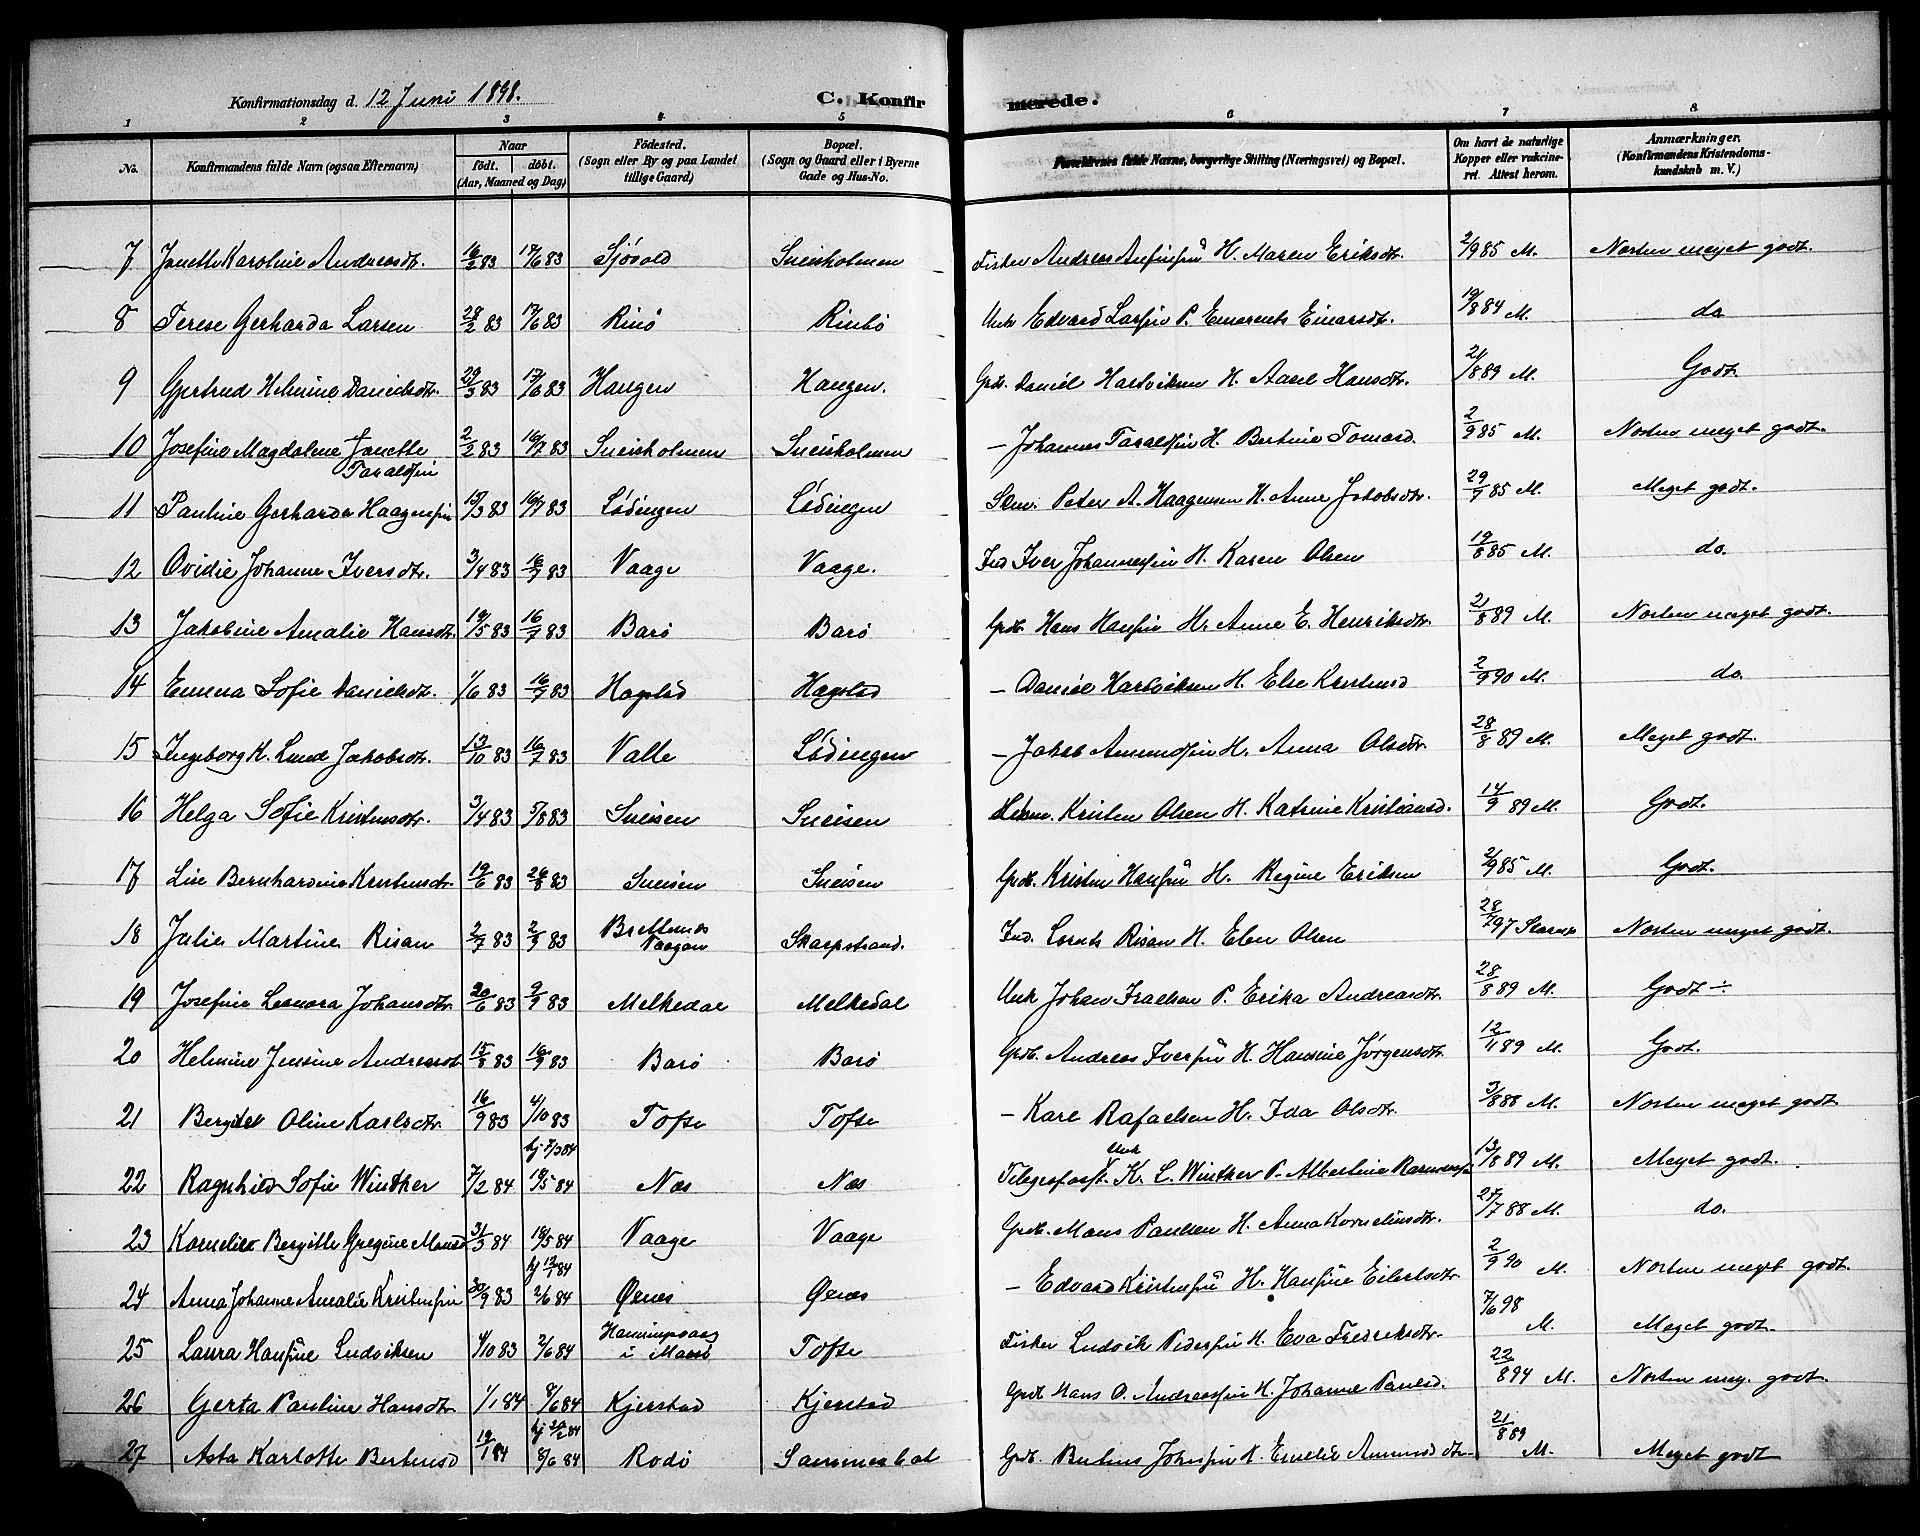 Konfirmationsdag d. 12 Juni 1898. C. Konfirmerede.
1 2 3 4 5 6 7 8
No. Konfirmandens fulde Navn (ogsaa Efternavn) Naar født. døbt. (Aar, Maaned og Dag) Fødested. (Sogn eller By og paa Landet tillige Gaard) Bopæl. (Sogn og Gaard eller i Byerne Gade og Hus-No. Forældrenes fulde Navne, borgerlige Stilling (Næringsvei) og Bopæl. Om havt de naturlige Kopper eller vakcineret. Attest herom. Anmærkninger. (Konfirmandens Kristendomskundskab m. V.)
7 Janette Karoline Andreasdt. 16/2 83 17/6 83 Sjövold Sneisholmen Fisker Andreas H. Maren Eriksdt. 2/9 85 M. Næsten meget godt.
8 Terese Gerharda Larsen 28/2 83 17/6 83 Rinø Rinø Unk Edvard Larssen P. Einarsdt. 19/8 84 M. do
9 Gjertrud Helmine Danielsdtr. 29/3 83 17/6 83 Haugen Haugen. Grdb. Daniel Hartviksen H. Aasel Hansdtr. 21/8 89 M. Godt
10 Josefine Magdalene Janette Taraldsen 2/2 83 16/7 83 Sneisholmen Sneisholmen — Johannes Taraldsen H. Bertine Tomasd. 2/9 85 M. Næsten meget godt.
11 Pauline Gerharda Haagensen 15/3 83 16/7 83 Lödingen Lödingen Peter A. Haagensen H. Anne Jakobsdtr. 29/7 85 M. Meget godt.
12 Ovidie Johanne Iversdtr. 3/4 83 16/7 83 Vaage Vaage. Ind Iver Johannessen H. Karen Olsen 19/8 85 M. do.
13 Jakobine Amalie Hansdtr. 19/5 83 16/7 83 Barø Barø Grdb. Hans Hansen H. Anne E. Henriksdtr 21/8 89 M. Næsten meget godt.
14 Emma Sofie Danielsdt. 1/6 83 16/7 83 Hagstad Hagstad — Daniel Hartviksen H. Else Kristensd 2/9 90 M. do.
15 Ingeborg H. Lund Jakobsdtr. 13/10 83 16/7 83 Valle Lödingen — Jakob Amundsen H. Anna Olsdtr. 28/8 89 M. Meget godt.
16 Helga Sofie Kristensdtr. 3/4 83 5/8 83 Sneisen Sneisen Kristen Olsen H. Katrine Kristiansd. 14/9 89 M. Godt.
17 Lise Bernhardine Kristensdt. 19/6 83 26/8 83 Sneisen Sneisen Grdb. Kristen Hansen H. Regine Eriksen 2/9 85 M. Godt.
18 Julie Martine Risan 2/7 83 2/9 83 Brettesnes Vaagan Skarpstrand. Ind. Lorents Risan H. Elen Olsen 28/7 97 Næsten meget godt.
19 Josefine Leonora Johansdtr. 20/6 83 2/9 83 Melkedal Melkedal Unk Johan Israelsen P. Erika Andreasdtr. 28/8 89 M. Godt ÷
20 Helmine Jensine Andreasdt 15/8 83 16/9 83 Barø Barø Grdb. Andreas Iversen H. Hansine Jörgensdtr 12/11 89 M. Godt.
21 Bergitte Oline Karlsdtr. 16/9 83 4/10 83 Tofte Tofte — Karl Rafaelsen H. Ida Olsdtr. 3/8 88 M. Næsten meget godt
22 Ragnhild Sofie Winther 7/2 84 hj 7/3 84 18/5 84 Næs Næs Telegrafass. Unk K. L. Winther P. Albertine 13/8 89 M. Meget godt.
23 Kornelie Bergitte Gregine Monsd 31/3 84 18/5 84 Vaage Vaage Grdb. Mons Paulsen H. Anna Korneliusdtr. 27/7 88 M. do.
24 Anna Johanne Amalie Kristensen 30/9 83 hj 12/1 84 2/6 84 Øxnes Øxnes — Edvard Kristensen H. Hansine Eilertsdtr 2/9 90 M. Næsten meget godt.
25 Laura Hansine Ludviksen 4/10 83 2/6 84 Honningsvaag i Maasö Tofte Fisker Ludvik Pedersen H. Eva Fredriksdtr. 7/6 98 M. Meget godt.
26 Gerta Pauline Hansdtr 1/1 84 8/6 84 Kjerstad Kjerstad Grdb Hans O. Andreassen H. Johanne Paulsd. 22/8 94 M. Næsten meg. godt
27 Asta Karlotte Bertinsd 19/1 84 hj 20/2 84 8/6 84 Rodø Grdb. Bertins Johnsen H. Emelie Amundsdtr. 21/8 89 M. Meget godt